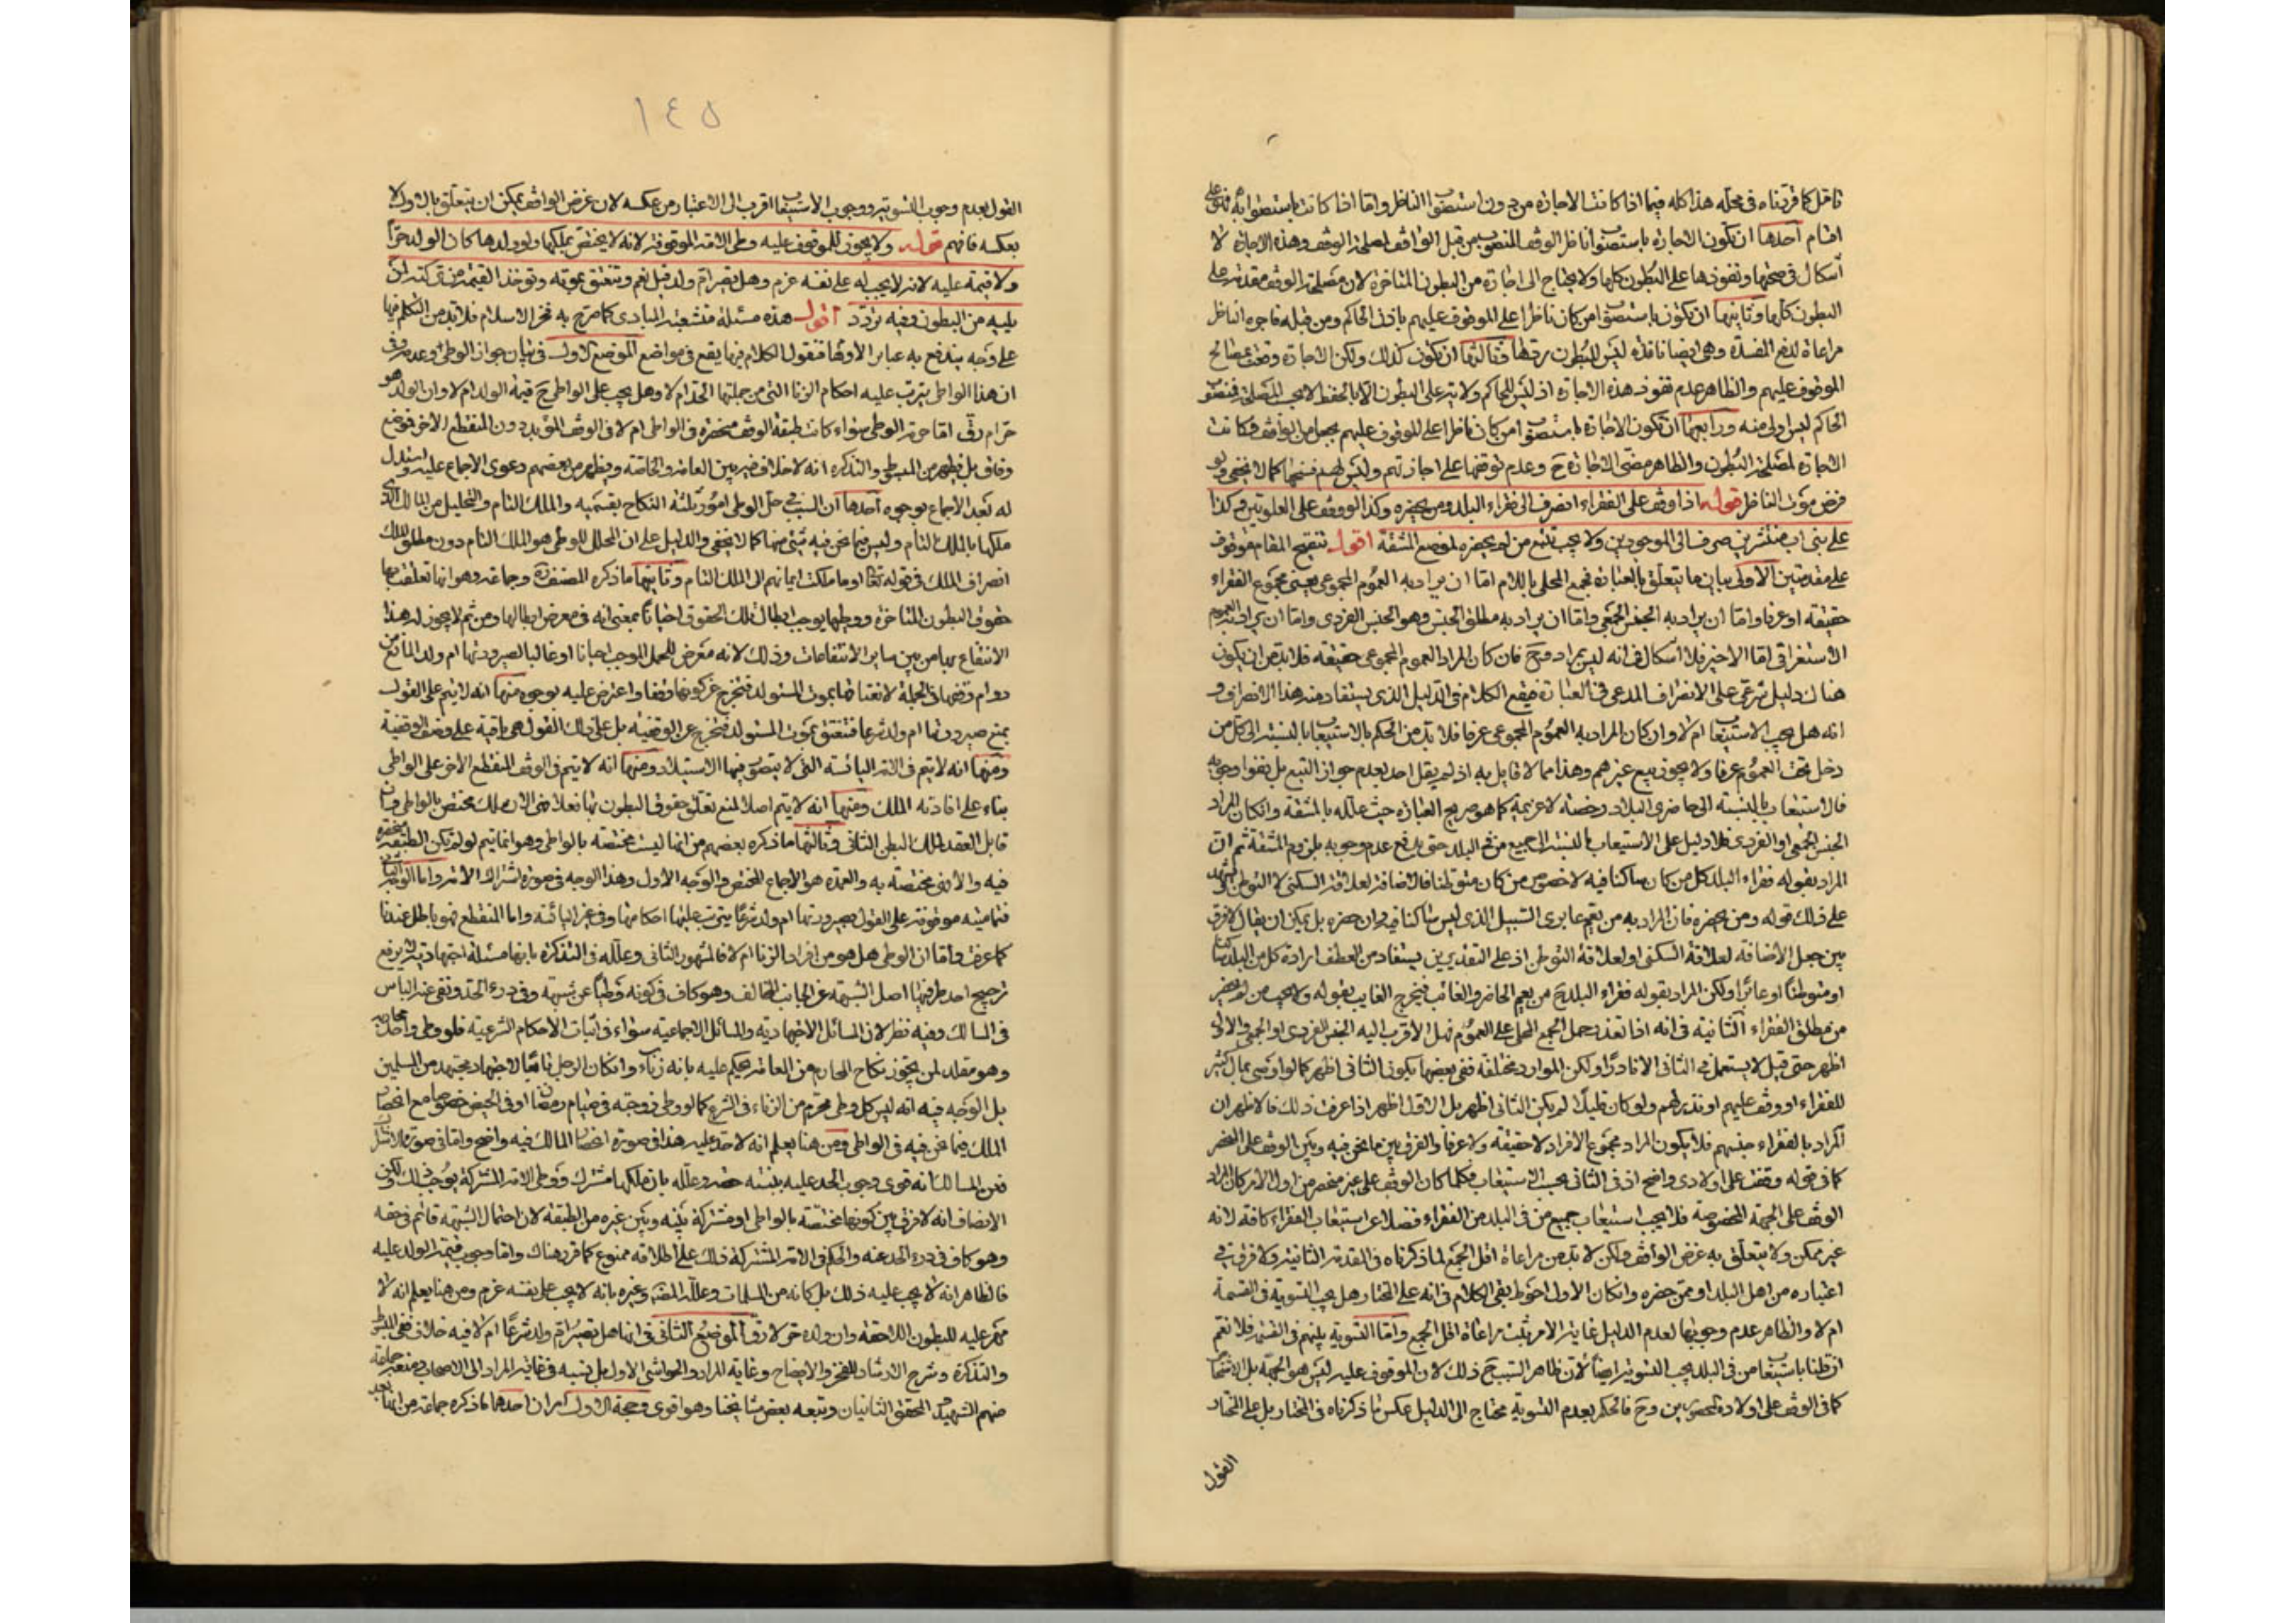 تامل كما قررناه فى محله هذا كله فيما اذا كانت الاجارة من دون استصواب الناظر واما اذا كانت باستصوابه فعلى
اقسام احدها ان تكون الاجارة باستصواب ناظر الوقف المنصوب من قبل الواقف لمصلحة الوقف وهذه الاجارة لا
اشكال فى صحتها ونفوذها على البطون كلها ولا يحتاج الى اجازة من البطون المتاخرة لان مصلحة الوقف مقدمة على
البطون كلها وثانيها ان يكون باستصواب من كان ناظرا على الموقوف عليهم باذن الحاكم ومن قبله فاجره الناظر
مراعاة لدفع المفسدة وهى ايضا نافذة ليس للبطون ردها وثالثها ان يكون كذلك ولكن الاجارة وقعت بمصالح
الموقوف عليهم والظاهر عدم نفوذ هذه الاجارة اذ ليس للحاكم ولاية على البطون الا بالحفظ لا بحسب المصلحة فمنصوب
الحاكم ليس اولى منه ورابعها ان تكون الاجارة باستصواب من كان ناظرا على الموقوف عليهم بجعل من الواقف فكانت
الاجارة لمصلحة البطون والظاهر مضى الاجارة ح وعدم توقفها على اجازتهم وليس لهم فسخها كما لا يخفى ولو
فرض موت الناظر قوله اذا وقف على الفقراء انصرف الى فقراء البلد ومن يحضره وكذا لو وقف على العلويين وكذا
على بنى اب منتشرين صرف الى الموجودين ولا يجب تتبع من لم يحضره لموضع المشقة اقول تنقيح المقام موقوف
على مقدمتين الاولى بيان ما يتعلق بالعبارة فجمع المحلى باللام اما ان يراد به العموم المجموعى يعنى مجموع الفقراء
حقيقة او عرفا واما ان يراد به الجنس الجمعى واما ان يراد به مطلق الجنس وهو الجنس الفردى واما ان يراد به العموم
الاستغراقى اما الاخير فلا اشكال فى انه ليس بمراد وح فان كان المراد العموم المجموعى حقيقة فلا بد من ان يكون
هناك دليل شرعى على الانصراف المدعى فى العبارة فيقع الكلام فى الدليل الذى يستفاد منه هذا الانصراف و
انه هل يجب الاستيعاب ام لا وان كان المراد به العموم المجموعى عرفا فلا بد من الحكم بالاستيعاب بالنسبة الى كل من
دخل تحت العموم عرفا ولا يجوز بيع غيرهم وهذا مما لا قايل به اذ لم يقل احد بعدم جواز التتبع بل نفوا وجوبه
فالاستيعاب بالنسبة الى حاضرى البلاد رخصة لا عزيمة كما هو صريح العبارة حيث علله بالمشقة وان كان المراد
الجنس الجمعى او الفردى فلا دليل على الاستيعاب بالنسبة الى جميع من فى البلد حتى يدفع عدم وجوبه بلزوم المشقة ثم ان
المراد بقوله فقراء البلد كل من كان ساكنا فيه لا خصوص من كان متوطنا فالاضافة لعلاقة السكنى لا التوطن يشهد
على ذلك قوله ومن يحضره فان المراد به من يعم عابرى السبيل الذى ليس ساكنا فيه وان حضره بل يمكن ان يقال لا فرق
بين جعل الاضافة لعلاقة السكنى او لعلاقة التوطن اذ على التقديرين يستفاد من العطف ارادة كل من البلد
او متوطنا او عابرا ولكن المراد بقوله فقراء البلد ح من يعم الحاضر والغائب فيخرج الغايب بقوله ولا يجب من لم يحضر
من مطلق الفقراء الثانية فى انه اذا تعذر حمل الجمع المحلى على العموم فهل الاقرب اليه الجنس الفردى او الجمعى والاول
اظهر حتى قيل لا يستعمل فى الثانى الا نادرا ولكن الموارد مختلفة ففى بعضها يكون الثانى اظهر كما لو اوصى بمال كثير
للفقراء او وقف عليهم او نذر لهم ولو كان قليلا لم يكن الثانى اظهر بل الاول اظهر اذا عرفت ذلك فالاظهر ان
المراد بالفقراء جنسهم فلا يكون المراد مجموع الافراد لا حقيقة ولا عرفا والفرق بين ما نحن فيه وبين الوقف على المنحصر
كما فى قوله وقفت على اولادى واضح اذ فى الثانى يجب الاستيعاب فكلما كان الوقف على غير منحصر من اول الامر كان المراد
الوقف على الجهة المخصوصة فلا يجب استيعاب جميع من فى البلد من الفقراء فضلا عن استيعاب الفقراء كافة لانه
غير ممكن ولا يتعلق به غرض الواقف ولكن لا بد من مراعاة اقل الجمع لما ذكرناه فى المقدمة الثانية ولا فرق فى
اعتباره من اهل البلد او ممن حضره وان كان الاول احوط بقى الكلام فى انه على المختار هل يجب التسوية فى القسمة
ام لا والظاهر عدم وجوبها لعدم الدليل غاية الامر يثبت مراعاة اقل الجمع واما التسوية بينهم فى القسمة فلا نعم
ان قلنا باستيعاب من فى البلد يجب التسوية ايضا لان ظاهر السبب ح ذلك لان الموقوف عليه ليس هو الجهة بل الاشخاص
كما فى الوقف على اولاده المحصورين وح فالحكم بعدم التسوية محتاج الى الدليل عكس ما ذكرناه فى المختار بل على المختار
القول
١٤٥
القول بعدم وجوب التسوية ووجوب الاستيعاب اقرب الى الاعتبار من عكسه لان غرض الواقف يمكن ان يتعلق بالاول لا
بعكسه فافهم قوله ولا يجوز للموقوف عليه وطى الامة الموقوفة لانه لا يختص بملكها ولو اولدها كان الولد حرا
ولا قيمة عليه لانه لا يجب له على نفسه غرم وهل تصير ام ولد قيل نعم وتنعتق بموته وتوخذ القيمة من تركته لمن
يليه من البطون وفيه تردد اقول هذه مسئلة متشعبة المبادى كما صرح به فخر الاسلام فلا بد من التكلم فيها
على وجه يندفع به عباير الاوهام فنقول الكلام فيها يقع فى مواضع الموضع الاول فى بيان جواز الوطى وعدمه وفى
ان هذا الواطى يترتب عليه احكام الزنا التى من جملتها الحد ام لا وهل يجب على الواطى ح قيمة الولد ام لا وان الولد هو
حرام رق اما حرمة الوطى سواء كانت طبقة الوقف منحصره فى الواطى ام لا فى الوقف المؤبد دون المنقطع الاخر فموضع
وفاق بل يظهر من المبسوط والتذكره انه لا خلاف فيه بين العامة والخاصة ويظهر من بعضهم دعوى الاجماع عليه واستدل
له بعد الاجماع بوجوه احدها ان السبب فى حل الوطى امور ثلثة النكاح بقسميه والملك التام والتحليل من المالك الذى
ملكها بالملك التام وليس فيما نحن فيه شئ منها كما لا يخفى والدليل على ان المحلل للوطى هو الملك التام دون مطلق الملك
انصراف الملك فى قوله تعالى او ما ملكت ايمانهم الى الملك التام وثانيها ما ذكره المصنف وجماعة وهو انها تعلقت بها
حقوق البطون المتاخرة ووطيها يوجب ابطال تلك الحقوق احيانا بمعنى انه فى معرض ابطالها ومن ثم لا يجوز له هذا
الانتفاع بها من بين ساير الانتفاعات وذلك لانه معرض للحمل الموجب احيانا او غالبا لصيرورتها ام ولد المانع من
دوام وقفها فى الجملة لانعتاقها بموت المستولد فتخرج عن كونها وقفا واعترض عليه بوجوه منها انه لا يتم على القول
بمنع صيرورتها ام ولد شرعا فتنعتق بموت المستولد فتخرج عن الوقفية بل على ذلك القول هى باقية على وصف الوقفية
ومنها انه لا يتم فى الامة اليائسة التى لا يتصور فيها الاستيلاد ومنها انه لا يتم فى الوقف المنقطع الاخر على الواطى
بناء على افادته الملك ومنها انه لا يتم اصلا لمنع تعلق حقوق البطون بها فعلا فهى الان ملك مختص بالواطى وان
قابل العقد لملك البطن الثانى وثالثها ما ذكره بعضهم من انها ليست مختصة بالواطى وهو انما يتم لو لم تكن الطبقة منحصره
فيه والا فهى مختصة به والعمدة هو الاجماع المختص والوجه الاول وهذا الوجه فى صورة اشتراك الامة واما الوجه الثانى
فتماميته موقوفة على القول بصيرورتها ام ولد شرعا يترتب عليها احكامها وفى غير اليائسة واما المنقطع فهو باطل عندنا
كما عرفت واما ان الوطى هل هو من افراد الزنا ام لا فالمشهور الثانى وعلله فى التذكرة بانها مسئلة اجتهادية لا يرفع
ترجيح احد طرفيها اصل الشبهة عن الجانب المخالف وهو كاف فى كونه وطيا عن شبهة وفى درء الحد ونفى عنه الباس
فى المسالك وفيه نظر لان المسائل الاجتهادية والمسائل الاجماعية سواء فى اثبات الاحكام الشرعية فلو وطى واحد
وهو مقلد لمن يجوز نكاح المحارم من العامة يحكم عليه بانه زان وان كان الرجل تابعا لاجتهاد مجتهد من المسلمين
بل الوجه فيه انه ليس كل وطى محرم من الزناء فى الشرع كما لو وطى زوجته فى صيام رمضان او فى الحيض خصوصا مع انحصار
الملك فيما نحن فيه فى الواطى ومن هنا يعلم انه لا حد عليه هذا فى صورة انحصار المالك فيه واضح واما فى صورة الاشتراك
فعن المسالك انه قوى وجوب الحد عليه بنسبة حصته وعلله بان ملكها مشترك ووطى الامة المشتركة يوجب ذلك ولكن
الانصاف انه لا فرق بين كونها مختصة بالواطى او مشتركة بينه وبين غيره من الطبقة لان احتمال الشبهة قائم فى حقه
وهو كاف فى درء الحد عنه والحكم فى الامة المشتركة ذلك على اطلاقه ممنوع كما قرر هناك واما وجوب قيمة الولد عليه
فالظاهر انه لا يجب عليه ذلك بل كانه من المسلمات وعلله المصنف وغيره بانه لا يجب على نفسه غرم ومن هنا يعلم انه لا
مهر عليه للبطون اللاحقة وان ولده حر لا رق الموضع الثانى فى انها هل تصير ام ولد شرعا ام لا فيه خلاف ففى المبسوط
والتذكرة وشرح الارشاد للفخر والايضاح وغاية المراد والحواشى الاول بل نسبه فى غاية المراد الى الاصحاب ومنعه جماعة
منهم الشهيد والمحقق الثانيان وتبعه بعض مشايخنا وهو اقوى وحجة الاول امران احدهما ما ذكره جماعة من انها